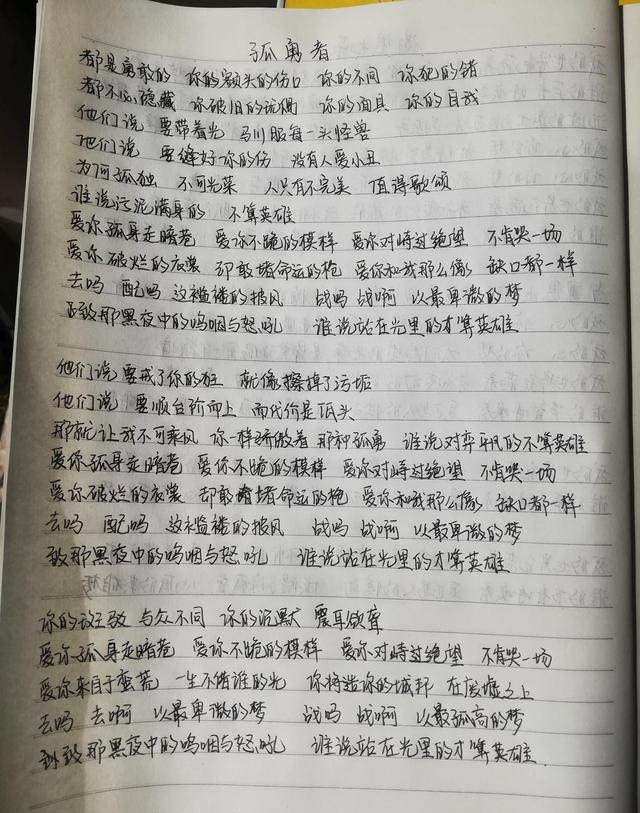 孤勇者
都是勇敢的 你的额头的伤口 你的不同 你犯的错
都不必隐藏 你破旧的玩偶 你的面具 你的自我
他们说 要带着光 驯服每一头怪兽
他们说 要缝好你的伤 没有人爱小丑
为何孤独 不可光荣 人只有不完美 值得歌颂
谁说污泥满身的 不算英雄
爱你孤身走暗巷 爱你不跪的模样 爱你对峙过绝望 不肯哭一场
爱你破烂的衣裳 却敢堵命运的枪 爱你和我那么像 缺口都一样
去吗 配吗 这褴褛的披风 战吗 战啊 以最卑微的梦
致那黑夜中的呜咽与怒吼 谁说站在光里的才算英雄
他们说 要戒了你的狂 就像擦掉了污垢
他们说 要顺台阶而上 而代价是低头
那就让我不可乘风 你一样骄傲着 那种孤勇 谁说对弈平凡的不算英雄
爱你孤身走暗巷 爱你不跪的模样 爱你对峙过绝望 不肯哭一场
爱你破烂的衣裳 却敢堵命运的枪 爱你和我那么像 缺口都一样
去吗 配吗 这褴褛的披风 战吗 战啊 以最卑微的梦
致那黑夜中的呜咽与怒吼 谁说站在光里的才算英雄
你的斑驳 与众不同 你的沉默 震耳欲聋
爱你孤身走暗巷 爱你不跪的模样 爱你对峙过绝望 不肯哭一场
爱你来自于蛮荒 一生不借谁的光 你将造你的城邦 在废墟之上
去吗 去啊 以最卑微的梦 战吗 战啊 以最孤高的梦
致那黑夜中的呜咽与怒吼 谁说站在光里的才算英雄